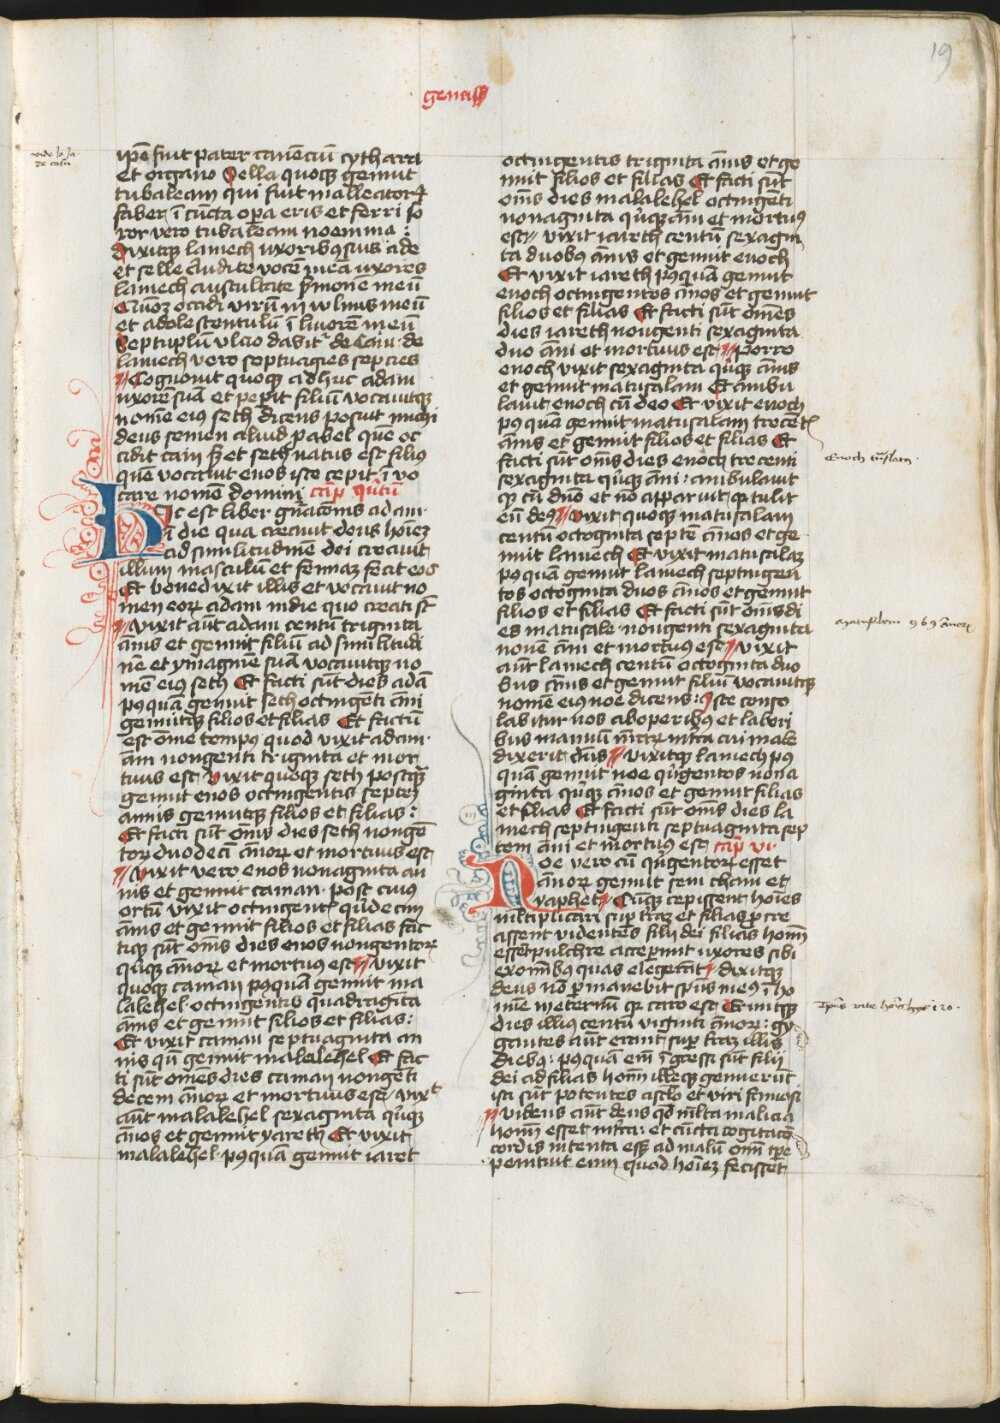 19
genesis
ipse fuit pater canenciū cythara
et organo Sella quoqꝫ genuit
tubalcain qui fuit malleator ⁊
faber ī cūcta opa eris et ferri so
ror vero tubalcain noemma :
dixitqꝫ lamech uxoribꝫ suis ade
et selle Audite vocē meā uxores
lamech auscultate sꝰmone meū
Quoꝫ occidi virū in wlnus meū
et adolescentulū ī livorē meū
Septuplū ulcio dabitʳ de Cain · de
lamech vero septuagies septies
Cognovit quoqꝫ adhuc adam
uxorē suā et pepit filiū vocavitqꝫ
nomē eiꝰ seth dicens posuit michi
deus semen aliud p abel quē oc
cidit cain sꝫ et seth natus est filiꝰ
quē vocavit enos iste cepit ī vo
care nomē domini cap̄ qūtū
Hic est liber gn̄acionis adam
ī die qua creavit deus hōieꝫ
ad similitudinē dei creavit
illum masculū et feminaꝫ fecit eos
Et benedixit illis et vocavit no
men eoꝝ adam in die quo creati sūt
Vixit aūt adam centū triginta
ānis et genuit filiū ad similitudi
nē et ymaginē suā vocavitqꝫ no
mē eiꝰ seth Et facti sūt dies adā
pꝰquā genuit seth octingēti āni
genuitqꝫ filios et filias Et factū
est om̄e tempꝰ quod vixit adam ·
āni nongenti triginta et mor
tuus est Vixit quoqꝫ seth postqꝫ
genuit enos octingentis septeꝫ
annis genuitqꝫ filios et filias :
Et facti sūt om̄s dies seth nongē
toꝝ duodecī ānoꝝ et mortuus est
Vixit vero enos nonaginta an
nis et genuit cainan · post cuiꝰ
ortū vixit octingentꝭ qīdecim
ānis et genuit filios et filias fac
tiqꝫ sūt om̄s dies enos nongentoꝝ
qīqꝫ ānoꝝ et mortuꝰ est Vixit
quoqꝫ cainan pꝰquam genuit ma
lalehel · octingentis quadraginta
ānis et genuit filios et filias :
Et vixit cainan septuaginta an
nis qn̄ genuit malalehel Et fac
ti sūt om̄es dies cainan nongēti
decem ānoꝝ et mortuus est / vixᵗ
aūt malalehel sexaginta qīqꝫ
ānos et genuit yareth Et vixit
malalehel · pꝰquā genuit iaret
octingentis triginta ānis et ge
nuit filios et filias Et facti sūt
om̄s dies malalehel octingēti
nonaginta qīqꝫ āni et mortuꝰ
est // vixit iareth centū sexagin
ta duobꝰ ānis et genuit enoch
Et vixit iareth pꝰquā genuit
enoch octingentos ānos et genuit
filios et filias Et facti sūt om̄es
dies iareth nongenti sexaginta
duo āni et mortuus est Porro
enoch vixit sexaginta qīqꝫ ānis
et genuit matusalam Et ambu
lavit enoch cū deo Et vixit enoch
pꝰ quā genuit matusalam trecentꝭ
ānis et genuit filios et filias Et
facti sūt om̄s dies enoch trecenti
sexaginta qīqꝫ āni : ambulavit
qꝫ cū dn̄o et nō apparuit qꝫ tulit
eū deꝰ Vixit quoqꝫ matusalam
centū octoginta septē ānos et ge
nuit lamech Et vixit matusalaꝫ
pꝰquā genuit lamech septingen
tos octoginta duos ānos et genuit
filios et filias Et facti sūt om̄s di
es matusale · nongenti sexaginta
nouē āni et mortuus est Vixit
aūt lamech centū octoginta duo
bus ānis et genuit filiū vocavitqꝫ
nomē eiꝰ noe dicens : Iste conso
labitur nos ab operibꝰ et labori
bus manuū nr̄aꝝ in tr̄a cui male
dixerit dn̄s Vixitqꝫ lamech pꝰ
quā genuit noe qīgentos nona
ginta qīqꝫ ānos et genuit filios
et filias Et facti sūt om̄s dies la
mech septingenti septuaginta sep
tem āni et mortuꝰ est cap̄ vi ·
Noe vero cū qīgentoꝝ esset
ānoꝝ genuit sem cham et
yaphet Cūqꝫ cepissent hōies
mltiplicari sup traꝫ et filias pcre
assent videntes filij dei filias homī
essēt pulchre acceperūt uxores sibi
ex om̄ibꝰ quas elegerāt · dixitqꝫ
deus nō pmanebit spūs meꝰ ī ho
mīe in eternū qꝛ caro est Eruntqꝫ
dies illiꝰ centū viginti ānoꝝ : gy
gantes aūt erant sup traꝫ ī illis
diebꝰ : pꝰquā em̄ īgressi sūt filij
dei ad filias homī illeqꝫ genuerūt
isti sūt potentes a seculo et viri famosi
Videns aūt deus qd̄ mlta malicia
homī esset in tra : et cūcta cogitacō
cordis intenta esset ad malū om̄i tpe
penituit eum quod hōieꝫ fecisset
Enoch trāslatꝰ ·
matusalam 969 ānoꝝ